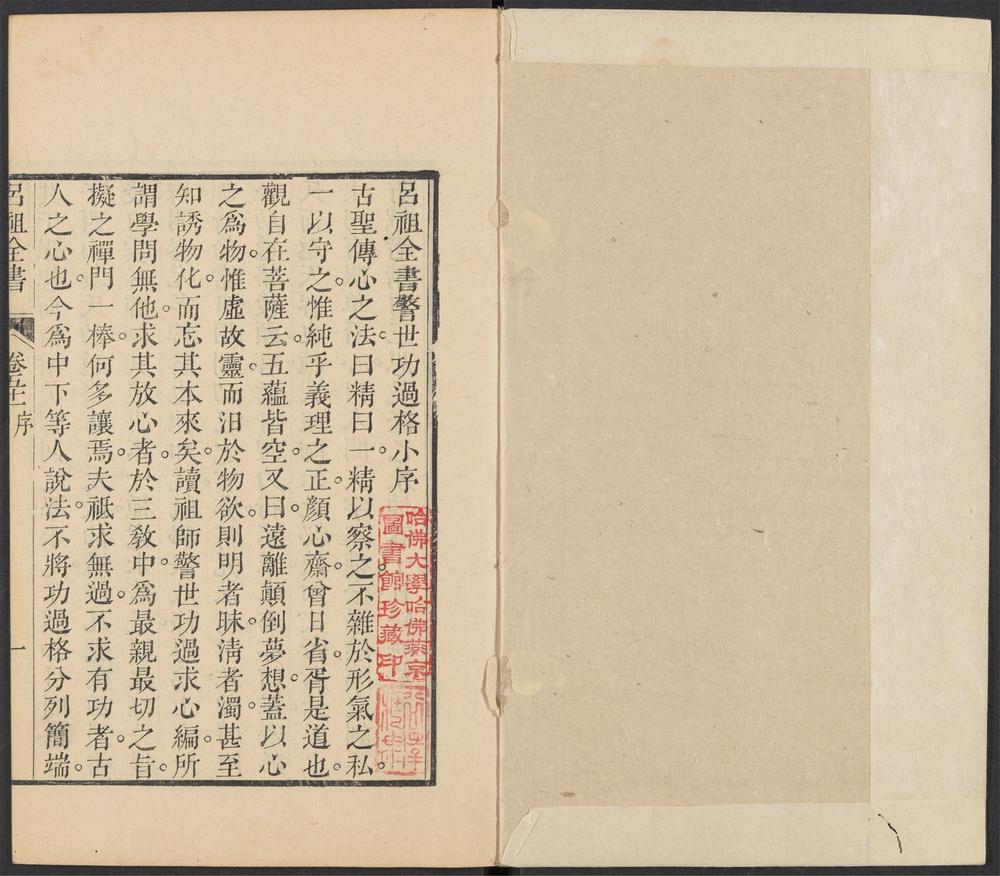 呂祖全書警世功過格小序
古聖傳心之法曰精曰一。精以察之。不雜於形氣之私。
一以守之。惟純乎義理之正。顏心齋。曾日省。胥是道也。
觀自在菩薩云。五蘊皆空。又曰。遠離顛倒夢想。蓋以心
之為物。惟虛故靈。而汨於物欲。則明者昧。清者濁。甚至
知誘物化。而忘其本來矣。讀祖師警世功過求心編。所
謂學問無他。求其放心者。於三敎中。為最親最切之旨。
擬之禪門一棒。何多讓焉。夫祗求無過。不求有功者。古
人之心也。今為中下等人說法。不將功過格分列簡端。
呂祖全書
卷
序
一
哈佛大學哈佛燕京
圖書館珍藏印